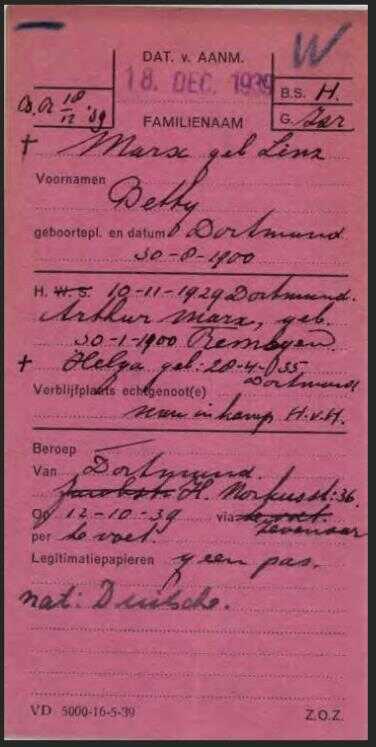 W
DAT. v. AANM.
18. DEC. 1939
B.S. H.
18/12 '39
G. Isr
FAMILIENAAM
+ Marx geb Linz
Voornamen
Betty
geboortepl. en datum Dortmund
30-8-1900
H. W. S. 10-11-1929 Dortmund.
Arthur Marx, geb.
30-1-1900 Remagen.
+ Helga geb: 28-4-'35
Dortmund
Verblijfplaats echtgenoot(e)
man in kamp H.v.H.
Beroep
Van Dortmund.
Jacobstr H. Norkusstr: 36.
Op 12-10-39 via te voet.
Zevenaar
per te voet.
Legitimatiepapieren geen pas.
nat: Duitsche.
VD 5000-16-5-39
Z.O.Z.